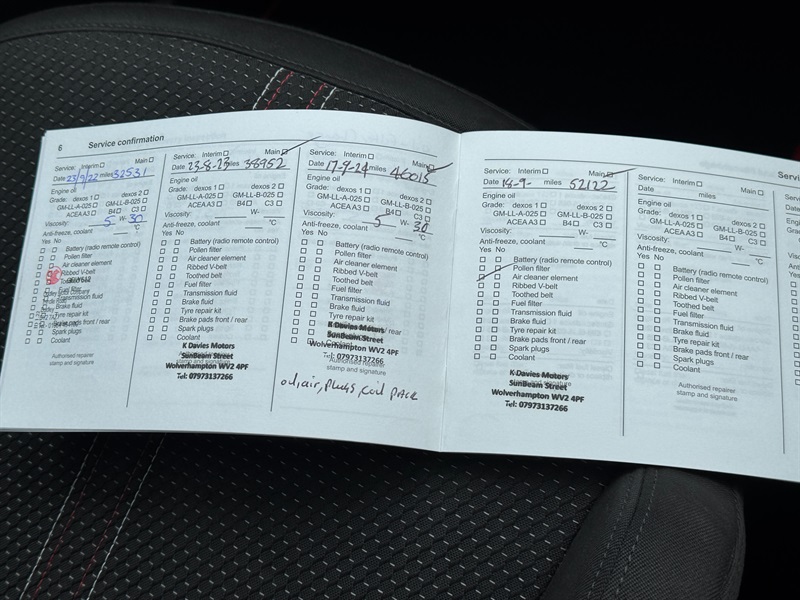 6 Service confirmation
Service: Interim Main
Date 23/9/22 miles 32531
Engine oil
Grade: dexos 1 dexos 2
GM-LL-A-025 GM-LL-B-025
ACEA A3 B4 C3
Viscosity: 5 W- 30
Anti-freeze, coolant °C
Yes No
Battery (radio remote control)
Pollen filter
Air cleaner element
Ribbed V-belt
Fuel filter
Transmission fluid
Brake fluid
Tyre repair kit
Brake pads front / rear
Spark plugs
Coolant
Authorised repairer
stamp and signature
Service: Interim Main
Date 23-8-23 miles 38952
Engine oil
Grade: dexos 1 dexos 2
GM-LL-A-025 GM-LL-B-025
ACEA A3 B4 C3
Viscosity: W-
Anti-freeze, coolant °C
Yes No
Battery (radio remote control)
Pollen filter
Air cleaner element
Ribbed V-belt
Toothed belt
Fuel filter
Transmission fluid
Brake fluid
Tyre repair kit
Brake pads front / rear
Spark plugs
Coolant
K Davies Motors
SunBeam Street
Wolverhampton WV2 4PF
Tel: 07973137266
Service: Interim Main
Date 17-9-24 miles 46015
Engine oil
Grade: dexos 1 dexos 2
GM-LL-A-025 GM-LL-B-025
ACEA A3 B4 C3
Viscosity: 5 W- 30
Anti-freeze, coolant °C
Yes No
Battery (radio remote control)
Pollen filter
Air cleaner element
Ribbed V-belt
Toothed belt
Fuel filter
Transmission fluid
Brake fluid
Tyre repair kit
K Davies Motors / rear
SunBeam Street
Wolverhampton WV2 4PF
Tel: 07973137266
Authorised repairer
stamp and signature
oil, air, plugs, coil pack
Service: Interim Main
Date 14-9- miles 52122
Engine oil
Grade: dexos 1 dexos 2
GM-LL-A-025 GM-LL-B-025
ACEA A3 B4 C3
Viscosity: W-
Anti-freeze, coolant °C
Yes No
Battery (radio remote control)
Pollen filter
Air cleaner element
Ribbed V-belt
Toothed belt
Fuel filter
Transmission fluid
Brake fluid
Tyre repair kit
Brake pads front / rear
Spark plugs
Coolant
K Davies Motors
SunBeam Street
Wolverhampton WV2 4PF
Tel: 07973137266
Service: Interim Main
Date miles
Engine oil
Grade: dexos 1 dexos 2
GM-LL-A-025 GM-LL-B-025
ACEA A3 B4 C3
Viscosity: W-
Anti-freeze, coolant °C
Yes No
Battery (radio remote control)
Pollen filter
Air cleaner element
Ribbed V-belt
Toothed belt
Fuel filter
Transmission fluid
Brake fluid
Tyre repair kit
Brake pads front / rear
Spark plugs
Coolant
Authorised repairer
stamp and signature